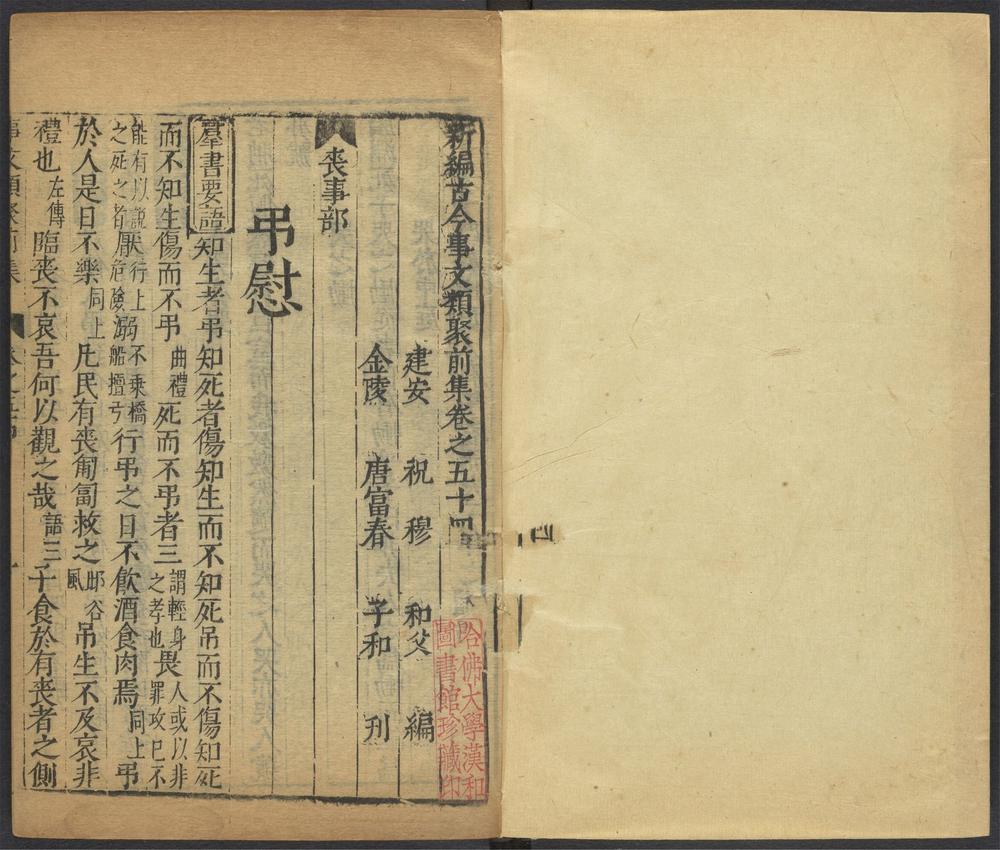 新編古今事文類聚前集卷之五十四
建安 祝穆 和父 編
金陵 唐富春 子和 刋
喪事部
弔慰
羣書要語知生者弔知死者傷知生而不知死吊而不傷知死
而不知生傷而不弔曲禮死而不弔者三謂輕身之孝也畏人或以非罪攻巳不
能有以說之死之者厭行止危險溺不乘橋船檀弓行弔之日不飲酒食肉焉同上弔
於人是日不樂同上凡民有喪匍匐救之邶谷風吊生不及哀非
禮也左傳臨喪不哀吾何以觀之哉語三子食於有喪者之側
四
哈佛大學漢和
圖書館珍藏印